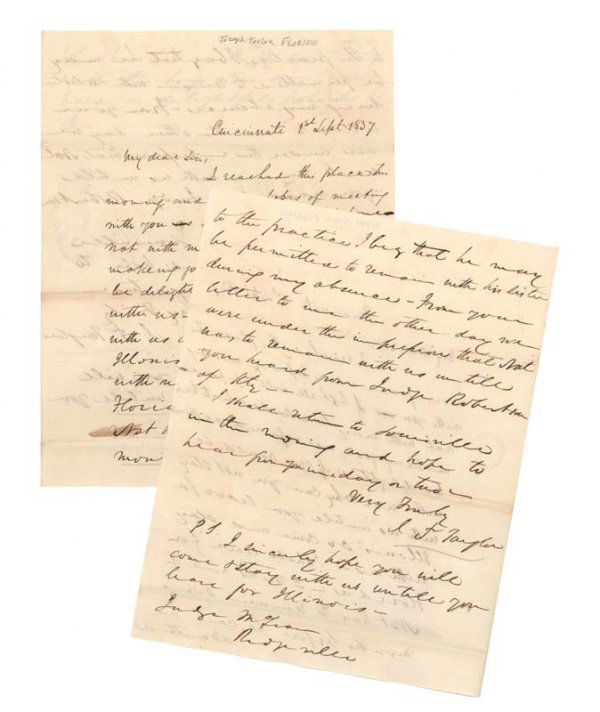 Joseph Taylor FLORIDA
Cincinnati 1st Sept 1837
My dear Sir,
I reached this place this
morning and hopes of meeting
with you
not with m
making
be delight
with us
with us
Illinois
with
Not
mon
to the practice I beg that he may
be permitted to remain with his sister
during my absence - From your
letter to me the other day we
were under the impression that Nat
was to remain with us untill
you heard from Judge Robertson
of Ky -
I shall return to Louisville
in the morning and hope to
hear from you in a day or two -
Very Truly
J F Taylor
P.S. I sincerely hope you will
come & stay with us untill you
leave for Illinois -
Judge McLean
Ridgeville